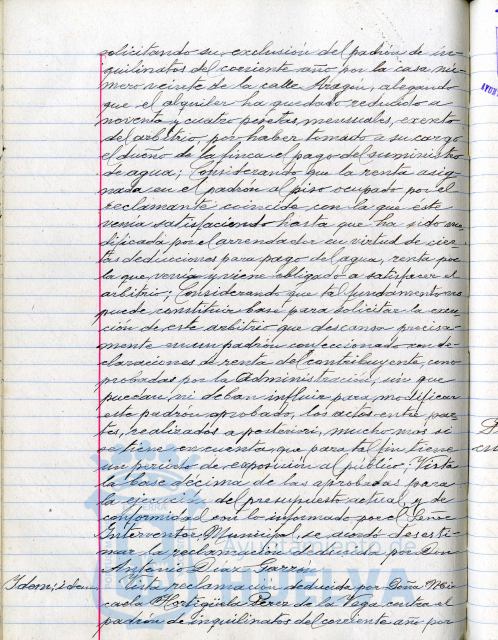 solicitando su exclusión del padrón de in-
quilinatos del corriente año por la casa nú-
mero veinte de la calle Aragón, alegando
que el alquiler ha quedado reducido a
noventa y cuatro pesetas mensuales, exento
del arbitrio, por haber tomado a su cargo
el dueño de la finca el pago del suministro
de agua; Considerando que la renta asig-
nada en el padrón al piso ocupado por el
reclamante coincide con la que éste
venía satisfaciendo hasta que ha sido mo-
dificada por el arrendador en virtud de cier-
tas deducciones para pago del agua, renta por
la que venía y viene obligado a satisfacer el
arbitrio; Considerando que tal fundamento no
puede constituir base para solicitar la exen-
ción de este arbitrio que descansa precisa-
mente en un padrón confeccionado con de-
claraciones de renta del contribuyente, com-
probadas por la Administración, sin que
puedan, ni deban influir para modificar
este padrón aprobado, los actos entre par-
tes, realizados a posteriori, mucho más si
se tiene en cuenta, que para tal fin tiene
un periodo de exposición al público; Vista
la base décima de las aprobadas para
la ejecución del presupuesto actual y de
conformidad con lo informado por el Señor
Interventor Municipal, se acordó desesti-
mar la reclamación deducida por Don
Antonio Díaz Garzón.
Idem; idem, Vista reclamación deducida por Doña
casta Hortigüela Perez de la Vega contra el
padrón de inquilinatos del corriente año por
Ayuntamiento de
HUELVA
AYUN